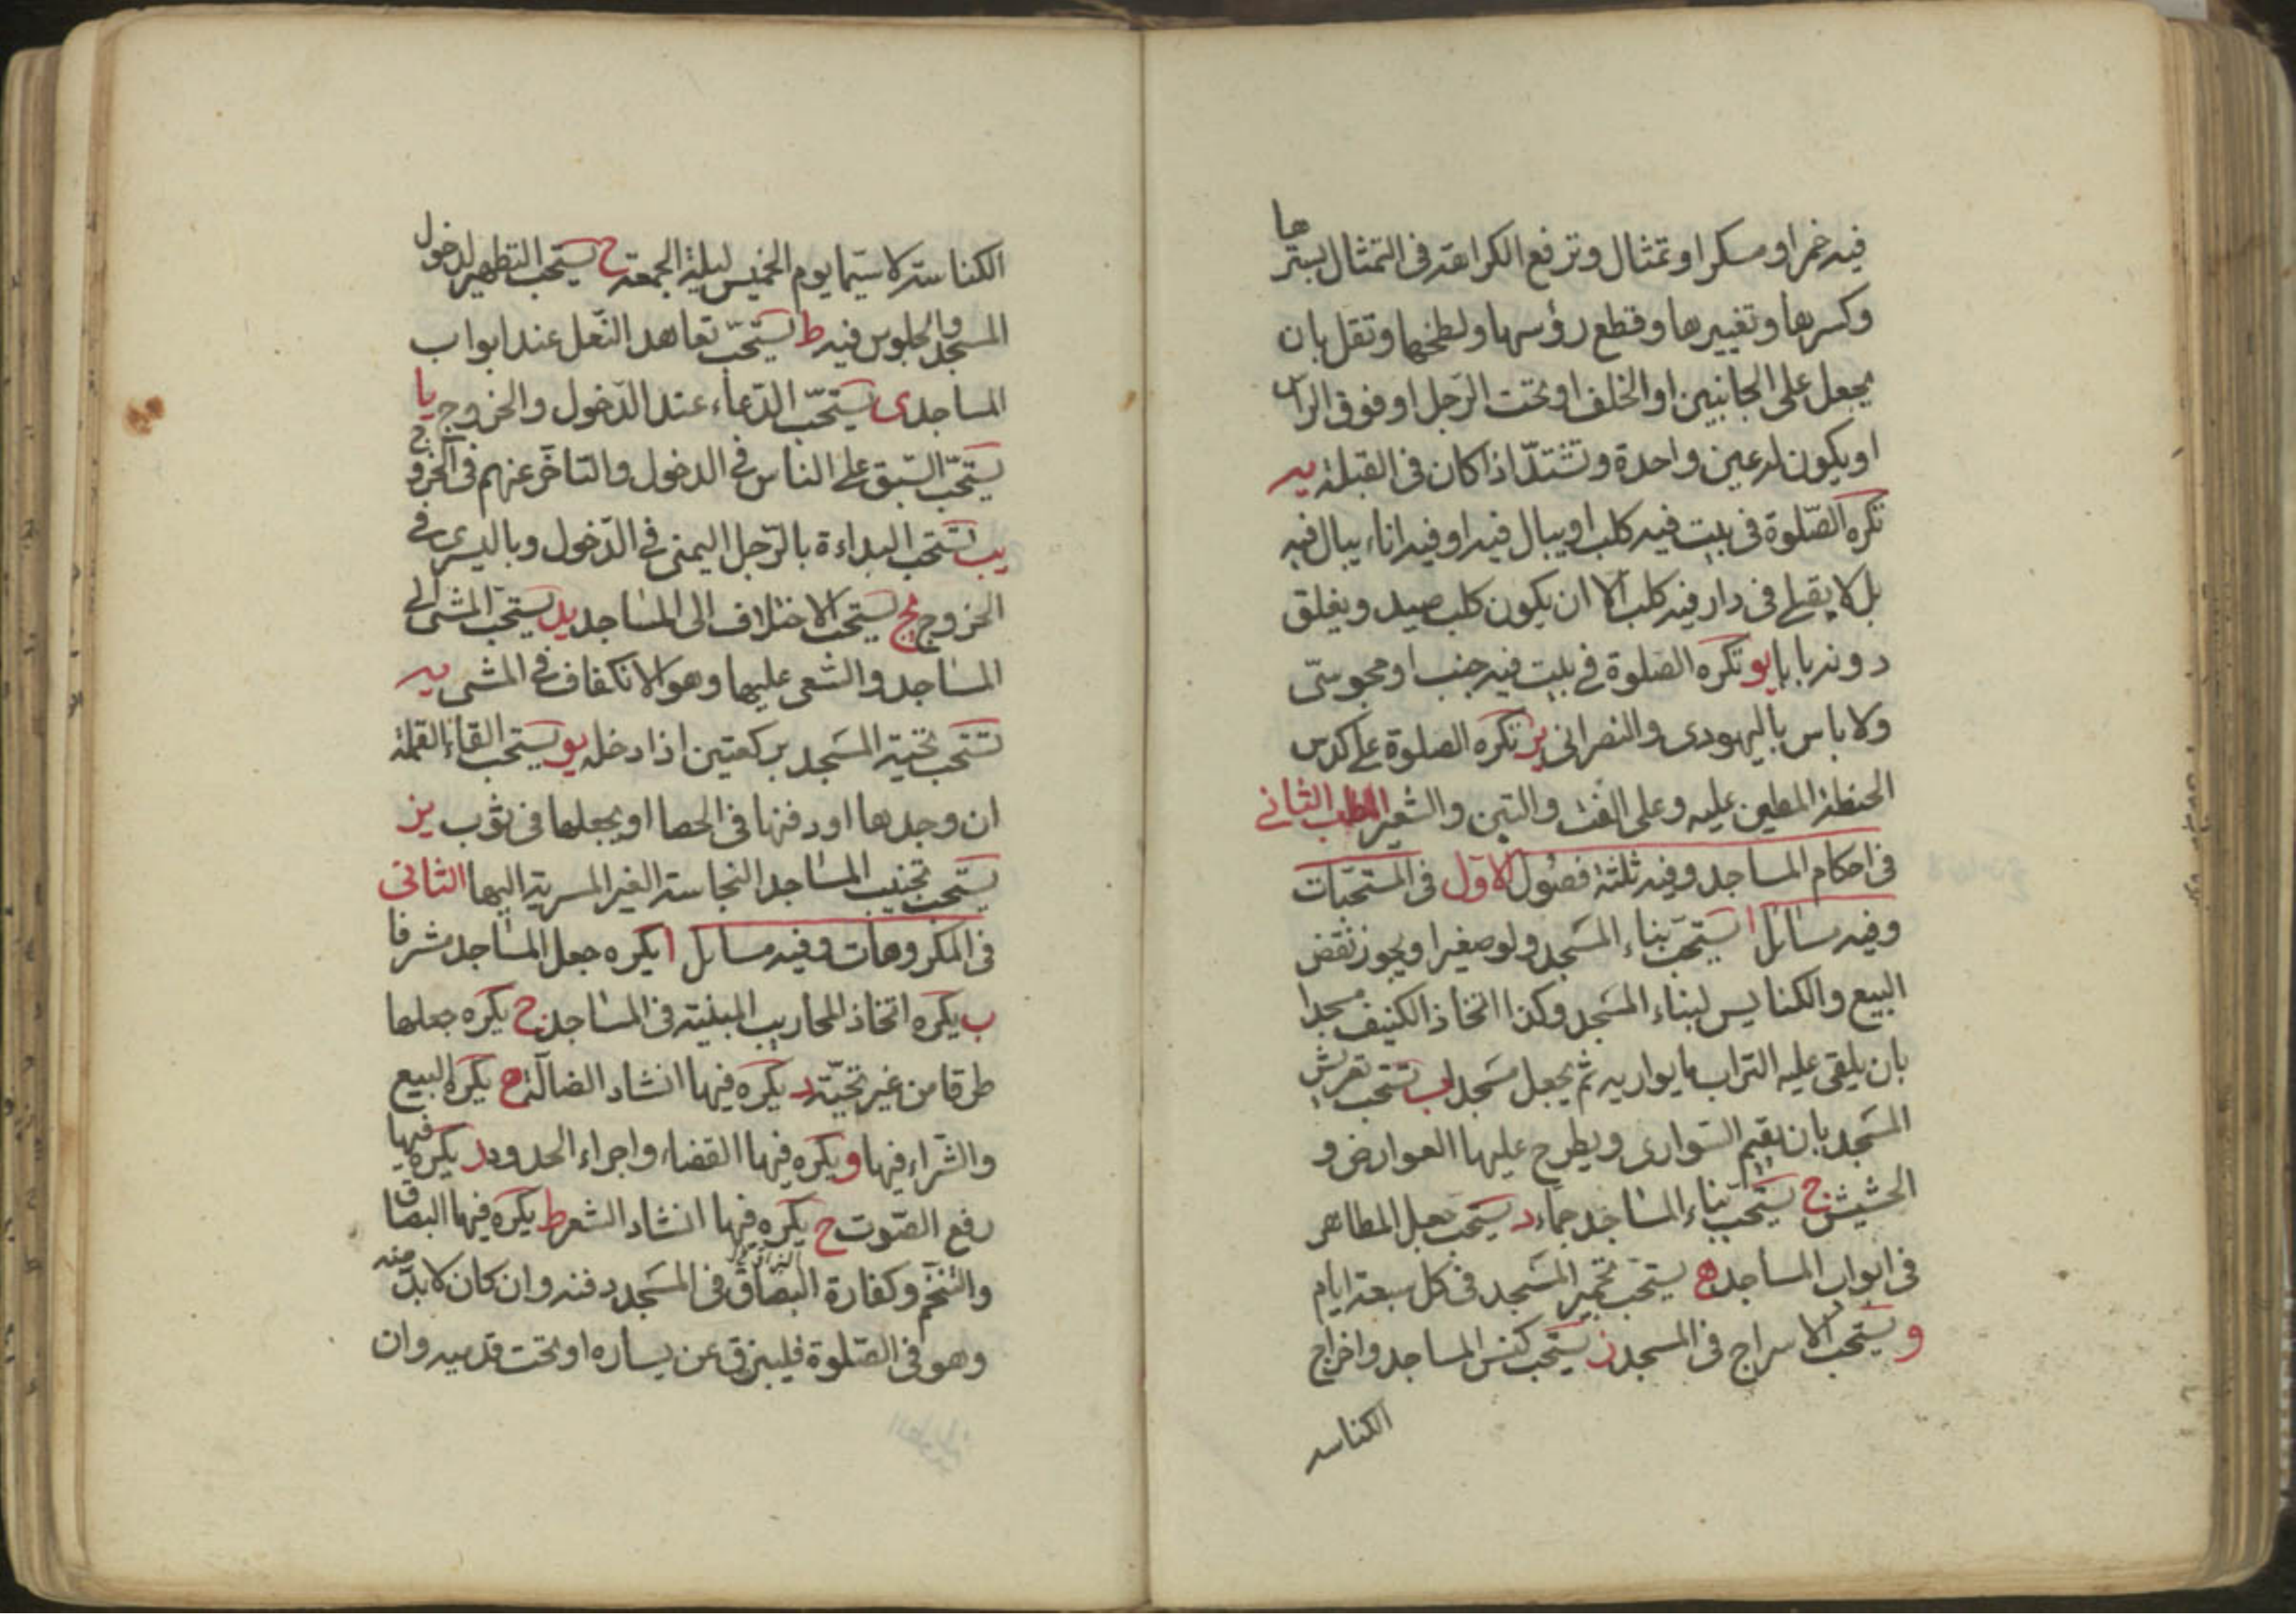 فيه خمر او مسكر او تمثال وترفع الكراهة فى التمثال بسترها
وكسرها وتغييرها وقطع رؤسها ولطخها وتقل بان
يجعل على الجانبين او الخلف او تحت الرّجل او فوق الراس
او يكون له عين واحدة وتشتدّ اذا كان فى القبلة يه
تكره الصّلوة فى بيت فيه كلب او يبال فيه او فيه اناء يبال فيه
بل لا يصلى فى دار فيه كلب الا ان يكون كلب صيد ويغلق
دونه بابا يو تكره الصّلوة فى بيت فيه جنب او مجوسىّ
ولا باس باليهودى والنصرانى يز تكره الصلوة على كدس
الحنطة المطين عليه وعلى القت والتبن والشّعير المطلب الثانى
فى احكام المساجد وفيه ثلثة فصول الاوّل فى المستحبّات
وفيه مسائل ا يستحبّ بناء المسجد ولو صغيرا ويجوز نقض
البيع والكنايس لبناء المسجد وكذا اتخاذ الكنيف مسجدا
بان يلقى عليه التراب ما يواريه ثم يجعل مسجدا ب يستحب تعريش
المسجد بان يقيم السّوارى ويطرح عليها العوارض و
الحشيش ج يستحب بناء المساجد جماء د يستحب جعل المطاهر
فى ابواب المساجد ه يستحب تجمير المسجد فى كل سبعة ايام
و يستحب الاسراج فى المسجد ز يستحب كنس المساجد واخراج
الكناسه
الكناسة لا سيّما يوم الخميس ليلة الجمعة ح يستحب التطهير لدخول
المسجد والجلوس فيه ط يستحبّ تعاهد النّعل عند ابواب
المساجد ى يستحبّ الدّعاء عند الدّخول والخروج يا
يستحبّ السّبق على الناس فى الدخول والتاخّر عنهم فى الخروج
يب يستحب البداءة بالرّجل اليمنى فى الدّخول وباليسرى فى
الخروج يج يستحب الاختلاف الى المساجد يد يستحبّ المشى الى
المساجد والسّعى عليها وهو الانكفاف فى المشى يه
تستحب تحية المسجد بركعتين اذا دخله يو يستحب القاء القملة
ان وجدها او دفنها فى الحصا او يجعلها فى ثوب يز
يستحب تجنيب المساجد النجاسة الغير المسرية اليها الثانى
فى المكروهات وفيه مسائل ا يكره جعل المساجد مشرفا
ب يكره اتخاذ المحاريب المبنية فى المساجد ج يكره جعلها
طرقا من غير تحيّة د يكره فيها انشاد الضالّة ه يكره البيع
والشّراء فيها و يكره فيها القضاء واجراء الحدود ز يكره فيها
رفع الصّوت ح يكره فيها انشاد الشعر ط يكره فيها البصاق
والتنخّم وكفارة البصاق فى المسجد دفنه وان كان لا بدّ منه
وهو فى الصّلوة فليبزق عن يساره او تحت قدميه وان